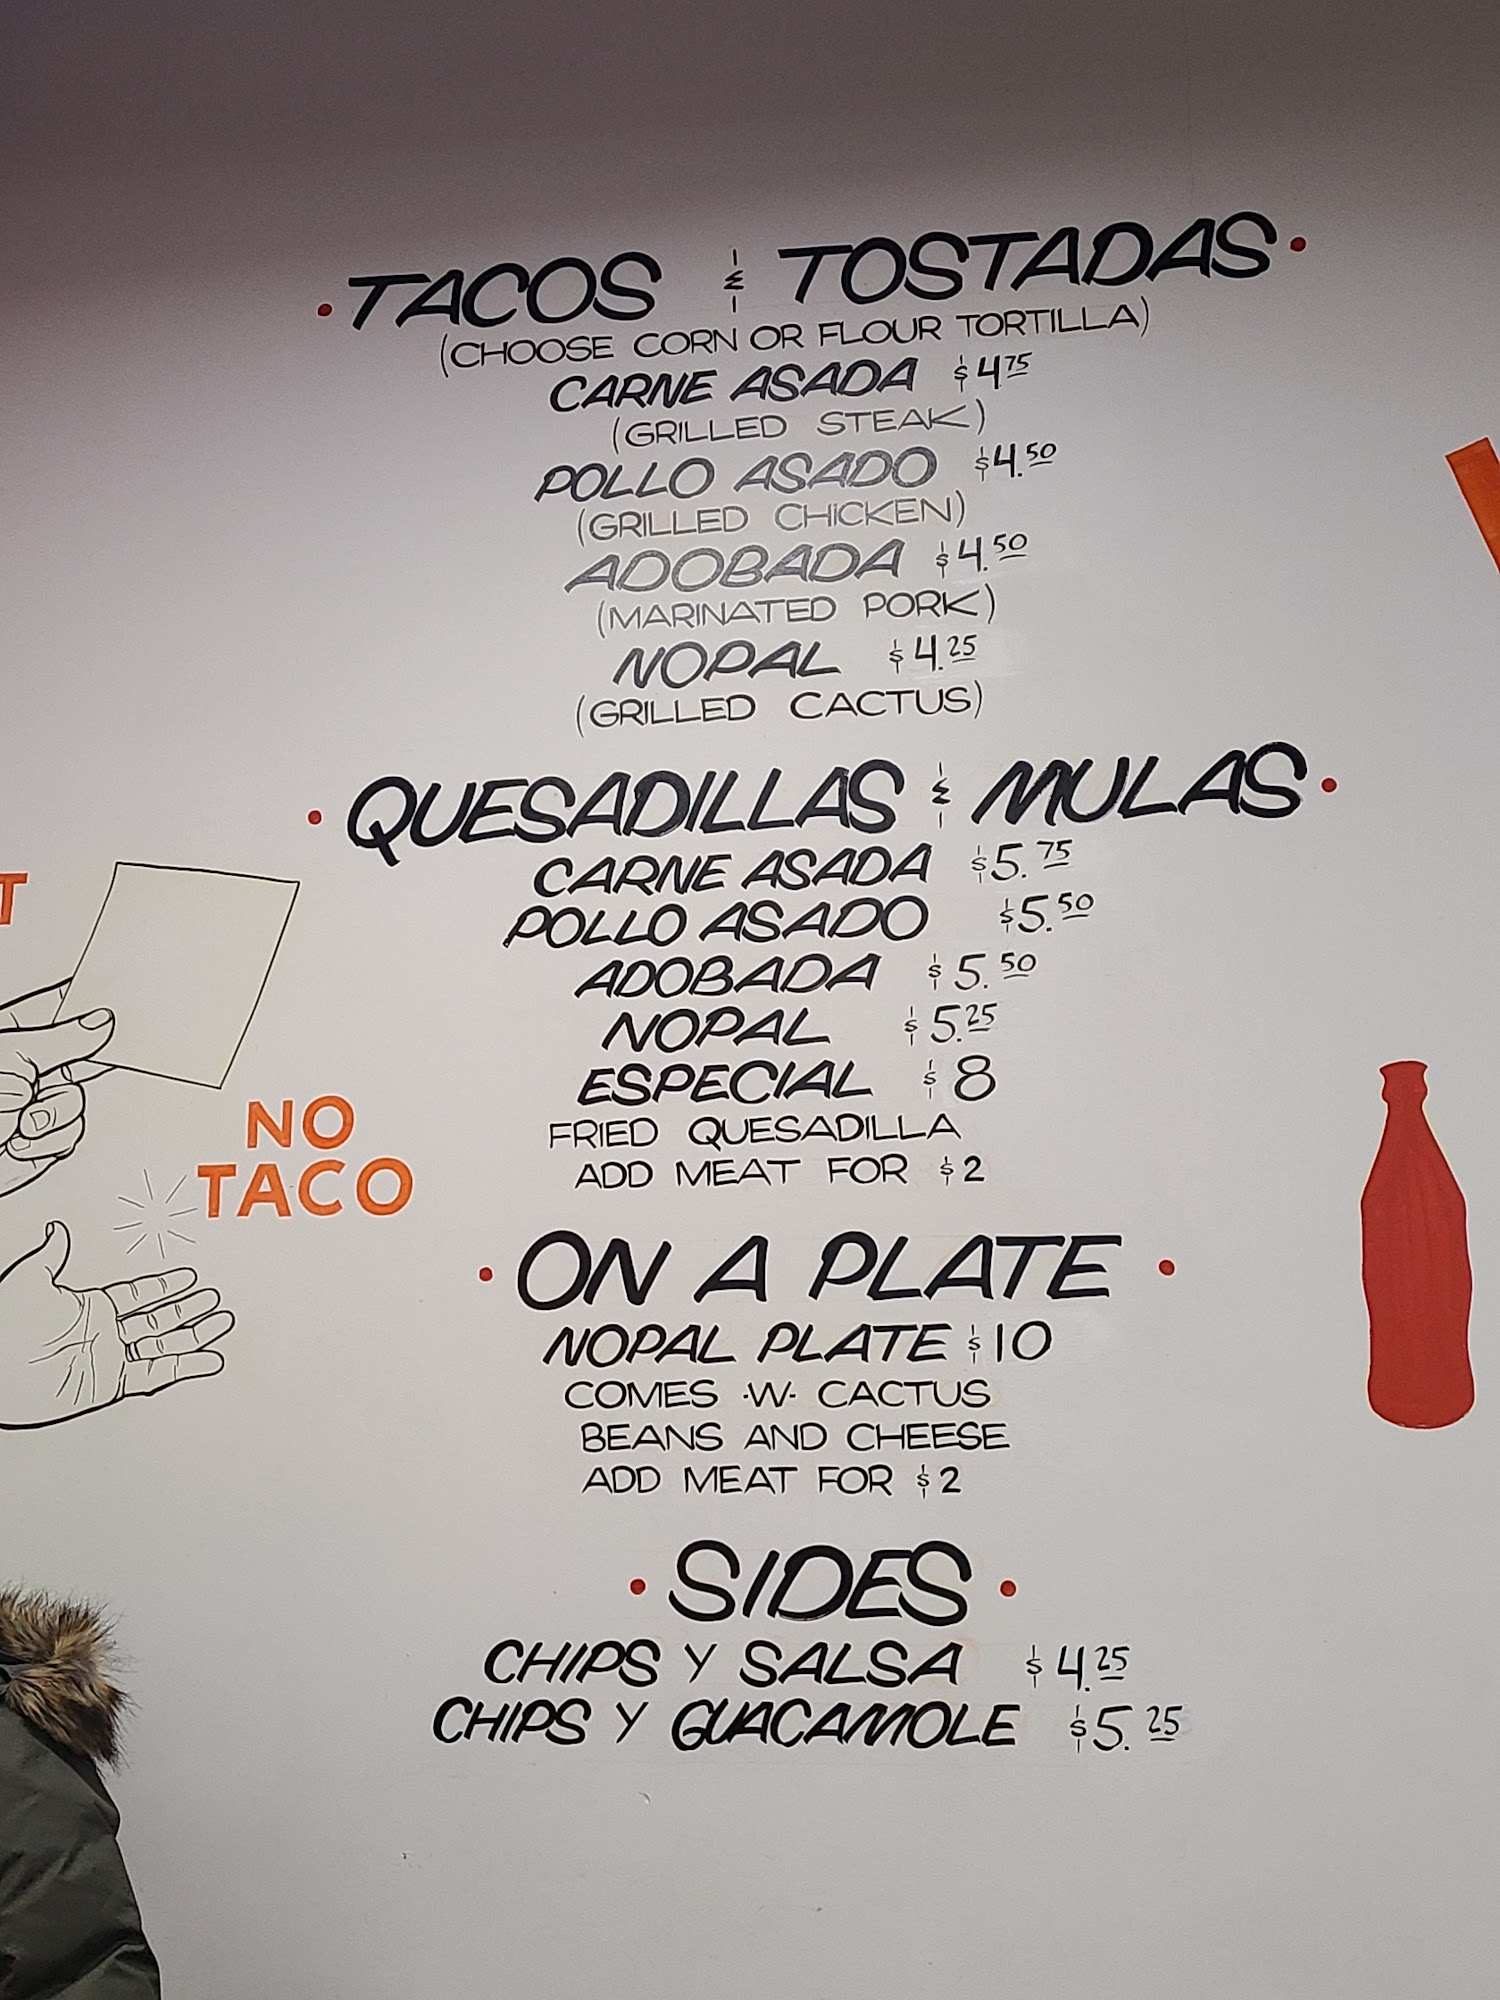 TACOS & TOSTADAS
(CHOOSE CORN OR FLOUR TORTILLA)
CARNE ASADA $4.75
(GRILLED STEAK)
POLLO ASADO $4.50
(GRILLED CHICKEN)
ADOBADA $4.50
(MARINATED PORK)
NOPAL $4.25
(GRILLED CACTUS)
QUESADILLAS & MULAS
CARNE ASADA $5.75
POLLO ASADO $5.50
ADOBADA $5.50
NOPAL $5.25
ESPECIAL $8
FRIED QUESADILLA
ADD MEAT FOR $2
ON A PLATE
NOPAL PLATE $10
COMES -W- CACTUS
BEANS AND CHEESE
ADD MEAT FOR $2
SIDES
CHIPS Y SALSA $4.25
CHIPS Y GUACAMOLE $5.25
NO
TACO